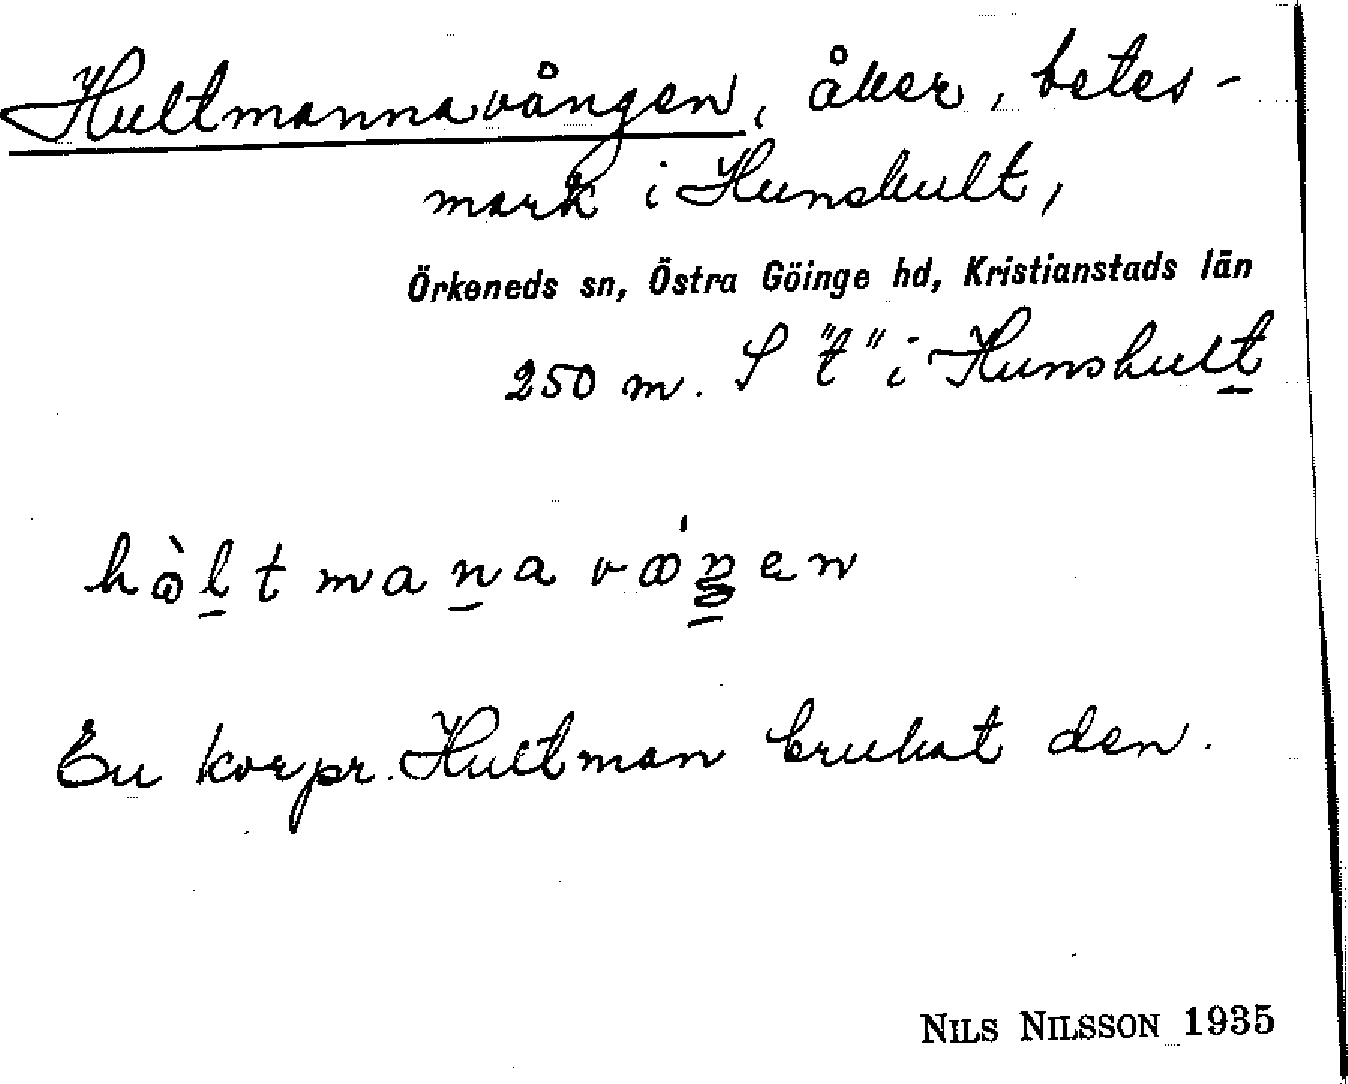 Hultmannavången, åker, betes-
mark i Hunshult,
Örkeneds sn, Östra Göinge hd, Kristianstads län
250 m. S "t" i Hunshult
En korpr. Hultman brukat den.
NILS NILSSON 1935